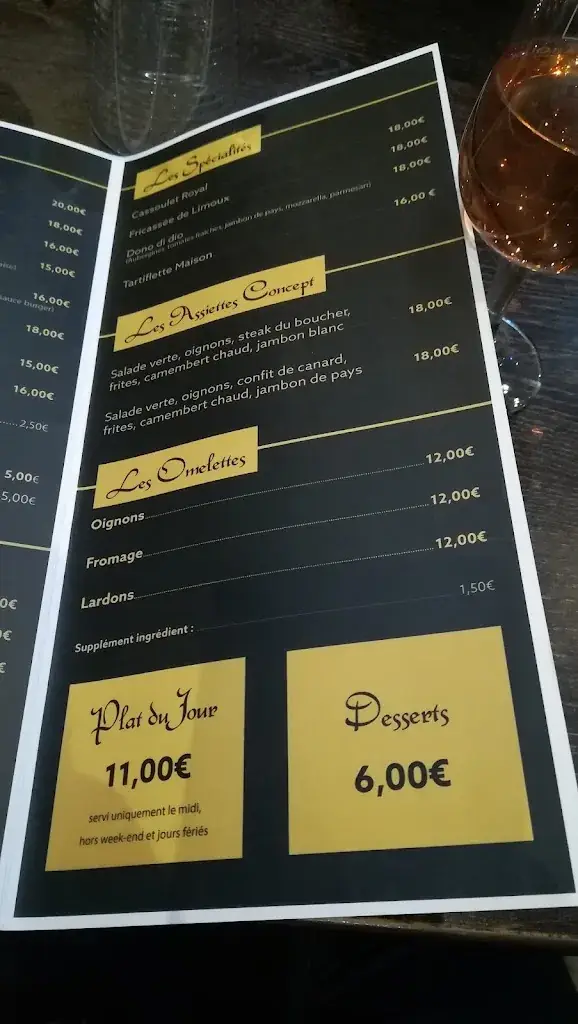 20,00€
18,00€
16,00€
15,00€
16,00€
sauce burger)
18,00€
15,00€
16,00€
2,50€
5,00€
5,00€
Les Spécialités
Cassoulet Royal 18,00€
Fricassée de Limoux 18,00€
Dono di dio 18,00€
(Aubergines, tomates fraîches, jambon de pays, mozzarella, parmesan)
Tartiflette Maison 16,00 €
Les Assiettes Concept
Salade verte, oignons, steak du boucher,
frites, camembert chaud, jambon blanc 18,00€
Salade verte, oignons, confit de canard,
frites, camembert chaud, jambon de pays 18,00€
Les Omelettes
Oignons 12,00€
Fromage 12,00€
Lardons 12,00€
Supplément ingrédient : 1,50€
Plat du Jour
11,00€
servi uniquement le midi,
hors week-end et jours fériés
Desserts
6,00€